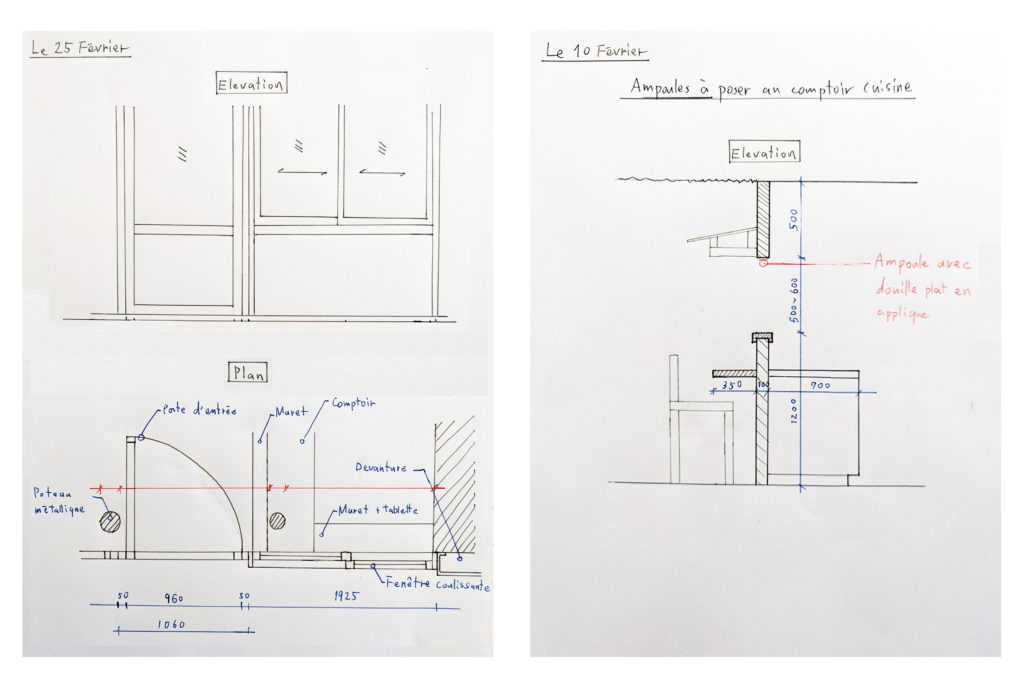 Le 25 Février
Elevation
Plan
Porte d'entrée
Muret
Comptoir
Devanture
Poteau
métallique
Muret + tablette
Fenêtre coulissante
50
960
50
1925
1060
Le 10 Février
Ampoules à poser au comptoir cuisine
Elevation
500
Ampoule avec
douille plat en
applique
500~600
350
100
700
1200